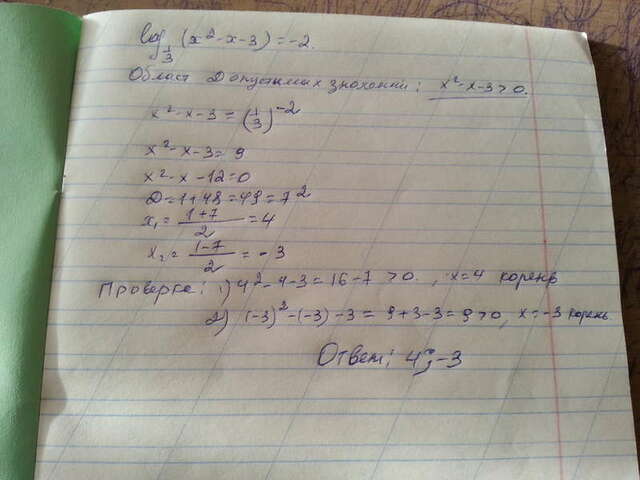 log_{1/3} (x²-x-3) = -2.
Област Допустымых значонни: x²-x-3>0.
x²-x-3 = (1/3)^{-2}
x²-x-3 = 9
x²-x-12=0
D=1+48=49=7²
x₁ = (1+7)/2 = 4
x₂ = (1-7)/2 = -3
Проверка: 1) 4²-4-3=16-7>0., x=4 корень
2) (-3)²-(-3)-3 = 9+3-3=9>0, x=-3 корень.
Ответ: 4; -3